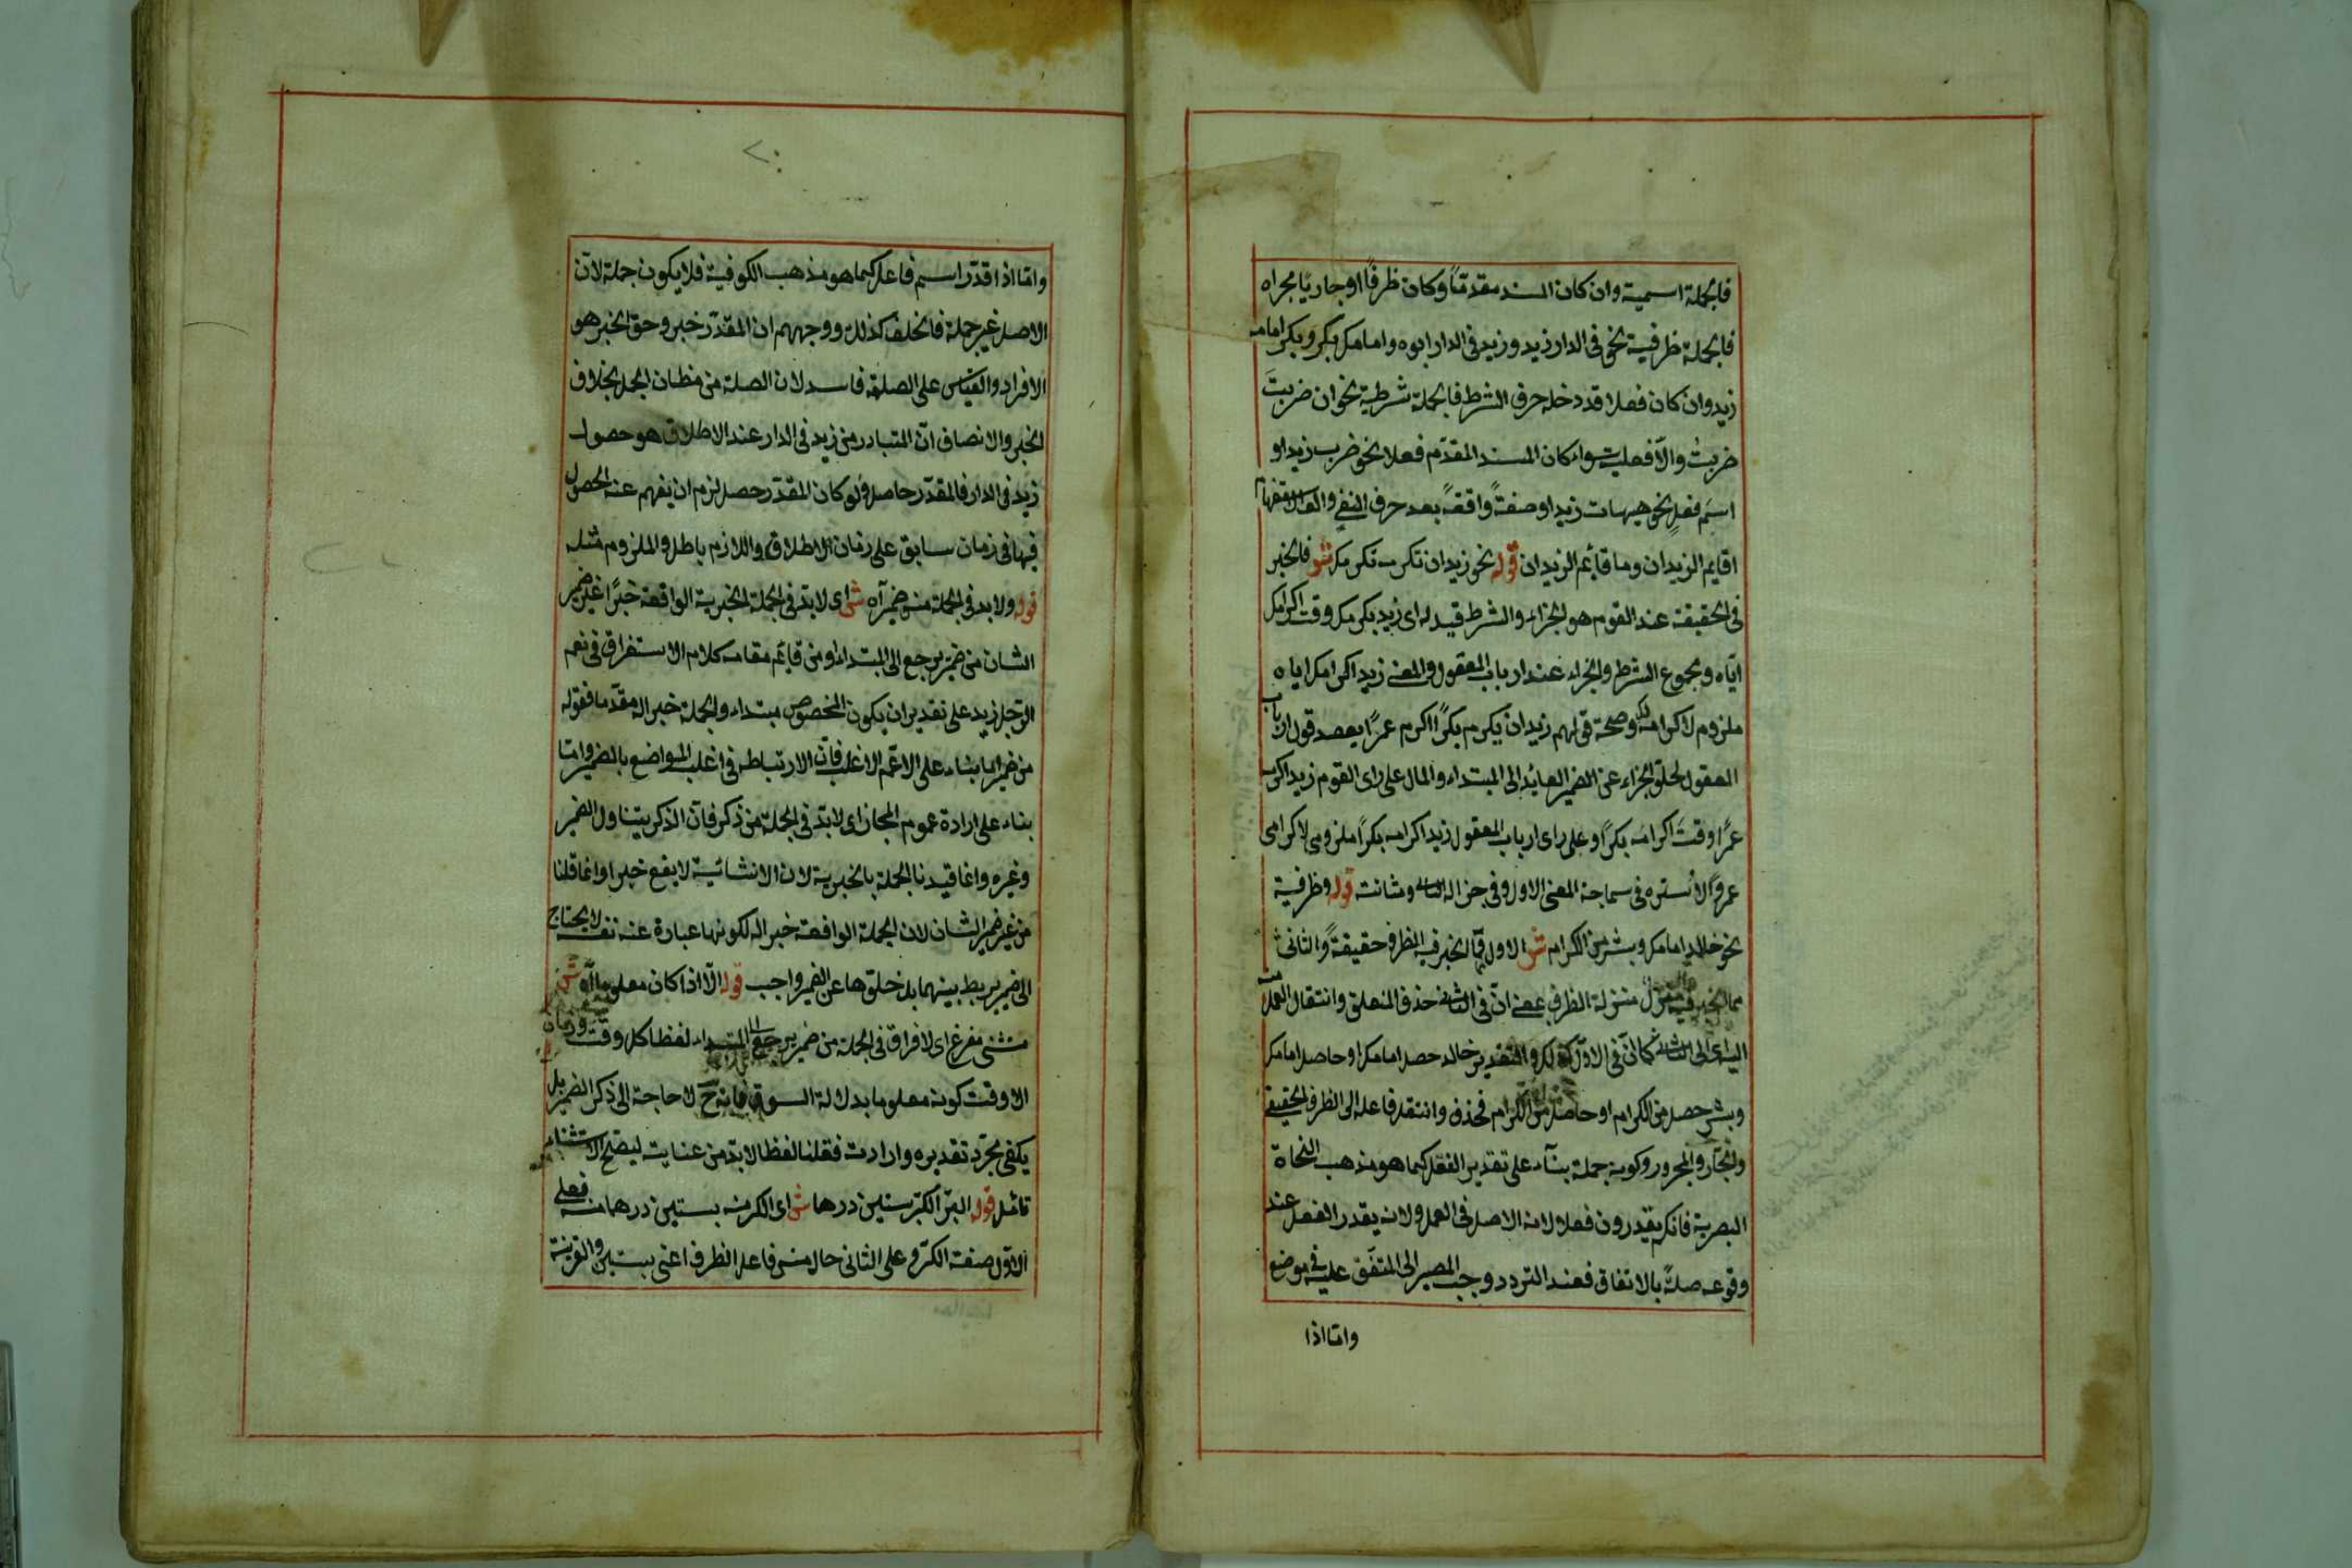 فالجملة اسمية وان كان المسند مقدمًا وكان ظرفًا او جاريًا مجراه
فالجملة ظرفية نحو فى الدار زيد وزيد فى الدار ابوه وامامك بكر وبكر امامه
زيد وان كان فعلا قد دخله حرف الشرط فالجملة شرطية نحو ان ضربتَ
ضربتُ والّا فعلية سواء كان المسند المقدّم فعلا نحو ضرب زيد او
اسم فعلٍ نحو هيهات زيد او صفةً واقعةً بعد حرف النفى والف الاستفهام
اقايم الزيدان وما قائم الزيدان قوله نحو زيد ان تكرمه تكرمك ش فالخبر
فى الحقيقة عند القوم هو الجزاء والشرط قيد له اى زيد يكرمك وقت اكرامك
ايّاه ومجموع الشرط والجزاء عند ارباب المعقول والمعنى زيد اكرامك اياه
ملزوم لاكرامه لك وصحة قولهم زيد ان يكرم بكرًا اكرم عمرًا يعضد قول ارباب
المعقول لخلوّ الجزاء عن الضمير العائد الى المبتداء والمال على راى القوم زيد اكرم
عمرًا وقت اكرامه بكرًا وعلى راى ارباب المعقول زيد اكرامه بكرًا ملزومى لاكرامى
عمروًا لا سترة فى سماجة المعنى الاول وفى جزالة الثانى ومتانته قوله وظرفية
نحو خالد امامك وبشر من الكرام ش الاول ممّا الخبر فيه الظرف حقيقةً والثانى
مما الخبر فيه منزل منزلة الظرف يعنى انّ فى الثانى حذف المتعلق وانتقال العمل منه
اليه اى الى الثانى كما انّ فى الاول كذلك والتقدير خالد حصل امامك او حاصل امامك
وبشر حصل من الكرام او حاصل من الكرام فحذف وانتقل فاعله الى الظرف الحقيقى
والجارّ والمجرور وكونه جملة بناء على تقدير الفعل كما هو مذهب النحاة
البصرية فانهم يقدرون فعلا لانه الاصل فى العمل ولانه يقدر الفعل عند
وقوعه صلةً بالاتفاق فعند التردد وجب المصير الى المتفق عليه فى موضع
وامّا اذا
۲۰
وامّا اذا قدّر اسم فاعل كما هو مذهب الكوفية فلا يكون جملة لانّ
الاصل غير جملة فالخلف كذلك ووجههم ان المقدّر خبر وحق الخبر هو
الافراد والقياس على الصلة فاسد لان الصلة من مظان الجمل بخلاف
الخبر والانصاف انّ المتبادر من زيد فى الدار عند الاطلاق هو حصول
زيد فى الدار فالمقدّر حاصل ولو كان المقدّر حصل لزم ان يفهم عنه الحصول
فيها فى زمان سابق على زمان الاطلاق واللازم باطل والملزوم مثله
قوله ولا بد فى الجملة من ضمير آه ش اى لا بدّ فى الجملة الخبرية الواقعة خبرًا غير ضمير
الشان من ضمير يرجع الى المبتداء او من قائم مقامه كلام الاستغراق فى نعم
الرّجل زيد على تقدير ان يكون المخصوص مبتداء والجملة خبرا له مقدّما فقوله
من ضمير اما بناء على الاعمّ الاغلب فانّ الارتباط فى اغلب المواضع بالضمير وامّا
بناء على ارادة عموم المجاز اى لا بدّ فى الجملة من ذكر فانّ الذكر يتناول الضمير
وغيره وانما قيدنا الجملة بالخبرية لان الانشائية لا يقع خبرا وانما قلنا
من غير ضمير الشان لان الجملة الواقعة خبرا له لكونها عبارة عنه نفسه لا يحتاج
الى ضمير يربط بينهما بل خلوّها عن الضمير واجب قوله الّا اذا كان معلوما آه ش
مستثنى مفرغ اى لا فراق فى الجملة من ضمير يرجع الى المبتداء لفظا كل وقت وزمان
الا وقت كونه معلوما بدلالة السوق فانه ح لا حاجة الى ذكر الضمير بل
يكفى مجرّد تقديره وارادته فقلنا لفظا لا بدّ من عنايته ليصحّ الاستثناء
تامّل قوله البرّ الكرّ بستين درهما ش اى الكرّ منه بستين درهما منه فعلى
الاوّل صفة الكرّ وعلى الثانى حال من فاعل الظرف اعنى بستين والقرينة